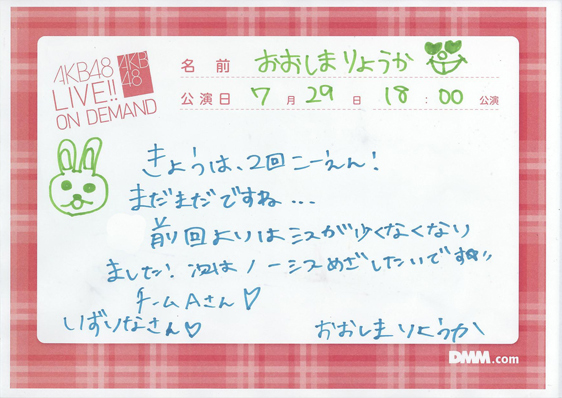 AKB48
LIVE!!
ON DEMAND
AKB
48
名前 おおしまりょうか
公演日 7月29日 18:00公演
きょうは、2回こーえん!
まだまだですね...
前回よりはミスが少くなくなり
ました!次はノーミスめざしたいです!!
チームAさん♡
いずりなさん♡
おおしまりょうか
DMM.com